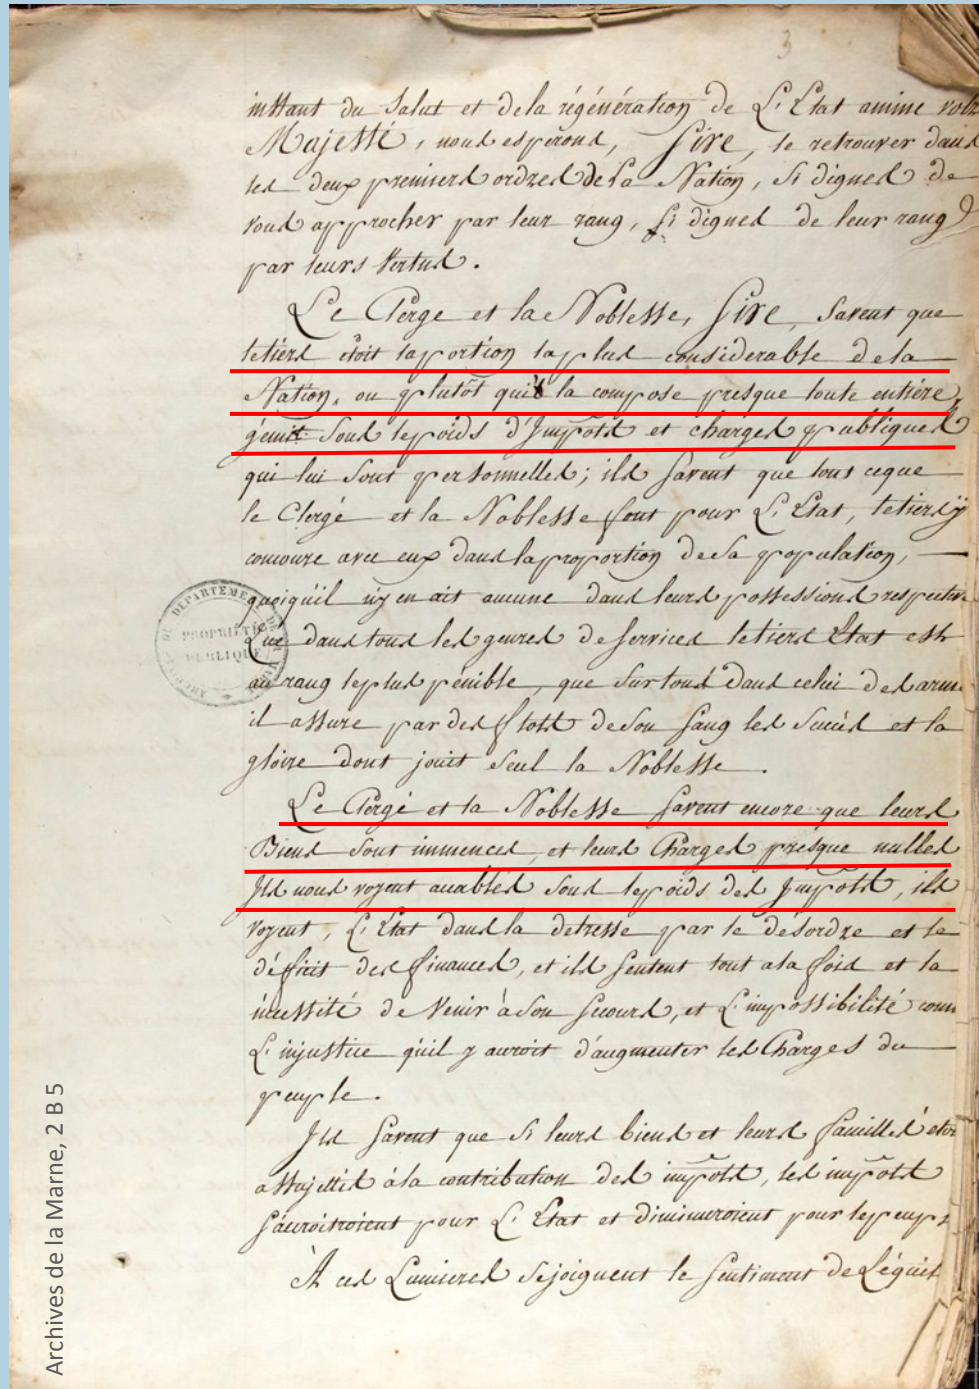 3
instant du Salut et dela régénération de L'Etat anime votre
Majesté, nous esperons, Sire, le retrouver dans
les deux premiers ordres de la Nation, Si dignes de
vous approcher par leur rang, Si dignes de leur rang
par leurs Vertus.
Le Clerge et la Noblesse, Sire, Savent que
letiers étoit laportion laplus considerable dela
Nation, ou plutôt qu'il la compose presque toute entière,
gémit Sous lepoids d'Impôts et charges publiques
qui lui sont personnelles; ils Savent que tout ceque
le Clergé et la Noblesse font pour L'Etat, letiers ÿ
concoure avec eux dans laproportion desa population,
quoiqu'il n'y en ait aucune dans leurs possessions respectiv
Que dans tous les genres de Services letiers Etat est
au rang leplus pénible, que Surtout dans celui des arme
il assure par des flots deson Sang les Succès et la
gloire dont jouit Seul la Noblesse.
Le Clergé et la Noblesse Savent encore que leurs
Biens Sont immences, et leurs Charges presque nulles
Ils nous voyent accablés Sous lepoids des Impôts, ils
voyent, L'Etat dans la detresse par le désordre et le
déficit des finances, et ils Sentent tout ala fois et la
nécessité de Venir àson Secours, et L'impossibilité comm
L'injustice qu'il y auroit d'augmenter les Charges du
peuple.
Ils Savent que Si leurs biens et leurs familles étoi
assujettis àla contribution des impôts, les impôts
S'accroitroient pour L'Etat et diminueroient pour lepeupl
À ces Lumieres Sejoignent le Sentiment de L'équit
DEPARTEMEN
PROPRIÉTÉ
PUBLIQUE
Archives de la Marne, 2 B 5